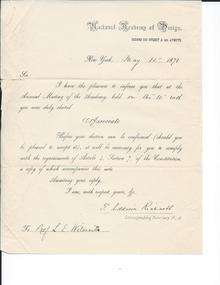 National Academy of Design,
New York, May 1871
Sir
I have the pleasure to inform you that at the
Annual Meeting of the Academy held on the
you were duly elected
Associate
Before your election can be confirmed (should you
be pleased to accept it), it will be necessary for you to comply
with the requirements of Article Section of the Constitution
a copy of which accompanies this note.
Awaiting your reply,
I am, with respect, yours, &c.
Corresponding Secretary N.A.
To Prof L.